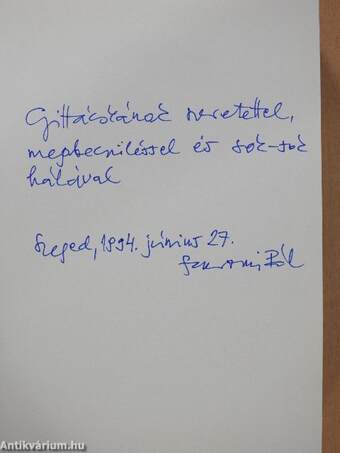 Gittácskának szeretettel,
megbecsüléssel és sok-sok
hálával
Szeged, 1994. június 27.
Pál
Antikvárium.hu